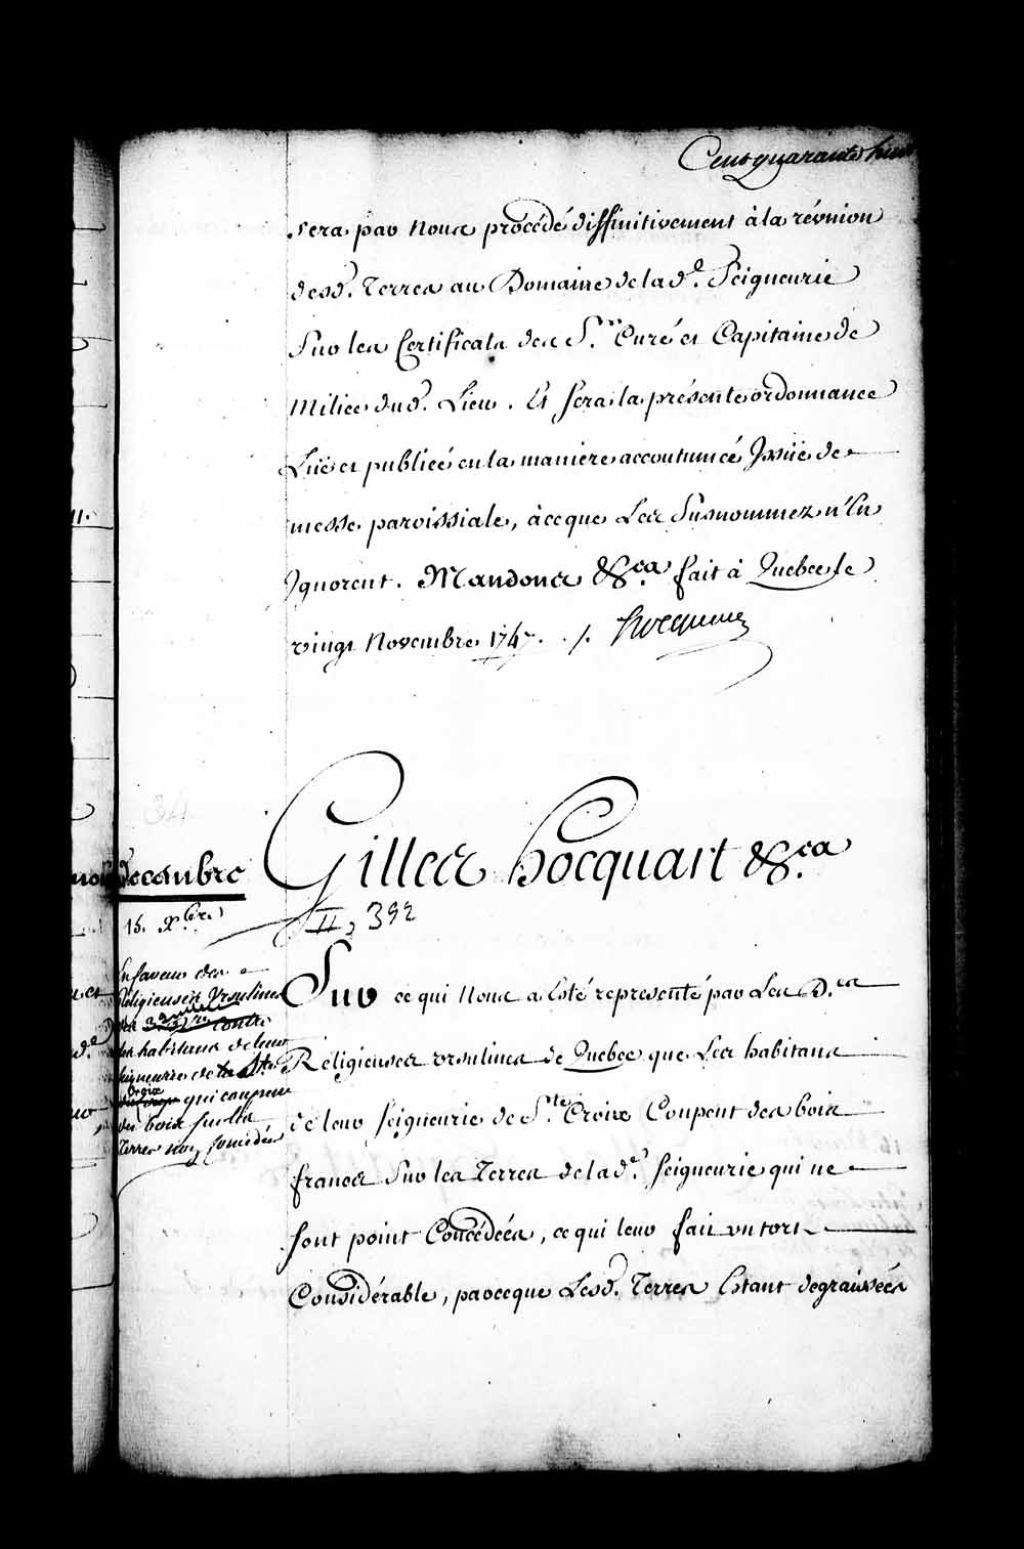 Cent quarante huit
sera par Nous procédé diffinitivement à la réunion
desd. Terres au Domaine de la d.e Seigneurie
Sur les Certificats des S.rs Curé et Capitaine de
Milice dud. Lieu. Et sera la présente ordonnance
Lüe et publiée en la maniere accoutumée Issüe de
messe paroissiale, à ce que Les Susnommez n'En
Ignorent. Mandons &c.a fait à Quebec le
vingt Novembre 1747. ./. hocquart
34
Decembre
Gilles hocquart &c.a
15. Xbre
II, 392
En faveur des
Religieuses Ursulines
contre
les habitans de leur
seigneurie de la Ste
Croix
qui coupent
du bois sur les
Terres non Concedées
Sur ce qui Nous a Esté representé par Les D.es
Réligieuses ursulines de Quebec que Les habitans
de leur seigneurie de S.te Croix Coupent des bois
francs Sur les Terres de la d.e seigneurie qui ne
sont point Concédées, ce qui leur fait un tort
Considérable, parce que Lesd. Terres Estant degraissées